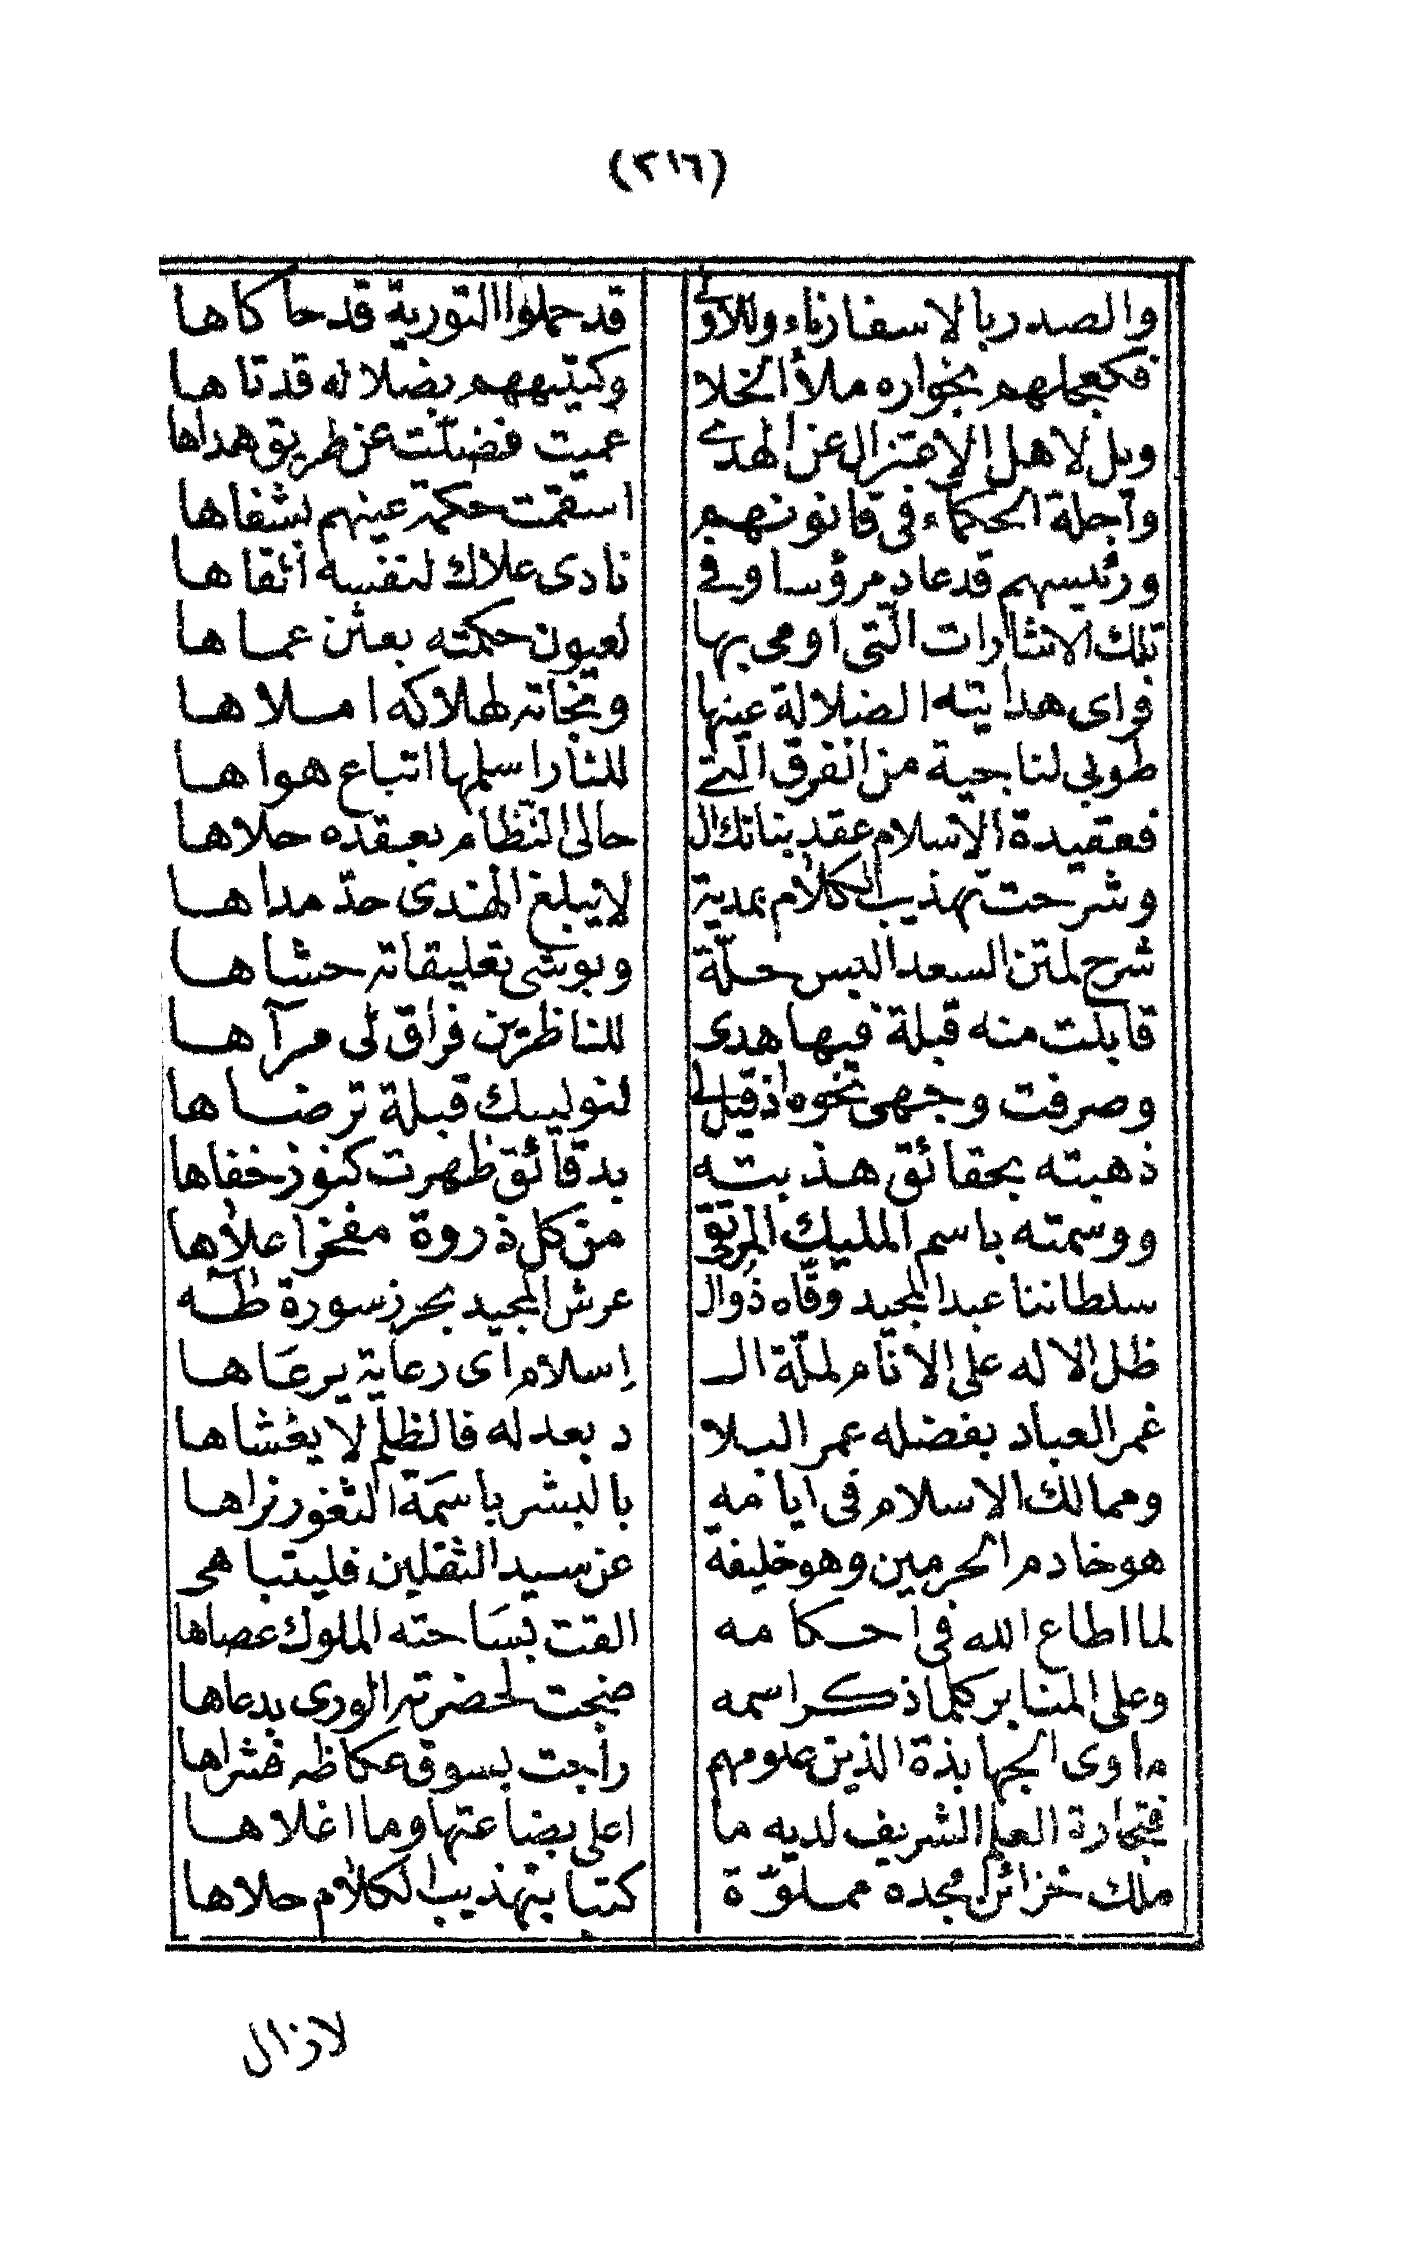 (٣١٦)
والصدر بالاسفار ناء وللاولى قد حملوا التورية قد حاكاها
فكعجلهم بخواره ملأ الخلا وكتيههم بضلاله قد تاها
ويل لاهل الاعتزال عن الهدى عميت فضلّت عن طريق هداها
وآجلة الحكماء فى قانونهم استقمت حكمة عينهم بشفاها
ورئيسهم قد عاد مرؤسا وفى نادى علاك لنفسه أتقاها
تلك الاشارات الّتى اومى بها لعيون حكمته بعثن عماها
فواى هدايته الضلالة عينها ونجاته لهلاكه املاها
طوبى لناجية من الفرق الّتى للثار اسلمها اتباع هواها
فعقيدة الاسلام عقد بنانك ال حالى النّظام بعقده حلاها
وشرحت تهذيب الكلام بمدية لا يبلغ الهندى حدّ مداها
شرح لمتن السعد البس حلّة وبوشى تعليقاته حشاها
قابلت منه قبلة فيها هدى للناظرين فراق لى مرآها
وصرفت وجهى نحوه اذ قيل لى لنولينك قبلة ترضاها
ذهبته بحقائق هذبته بدقائق ظهرت كنوز خفاها
ووسمته باسم المليك المرتقى من كل ذروة مفخر اعلاها
سلطاننا عبد المجيد وقّاه ذو ال عرش المجيد بحرز سورة طٰه
ظل الاله على الانام لملّة ال إسلام اى رعاية يرعاها
غمر العباد بفضله عمر البلا د بعدله فالظلم لا يغشاها
وممالك الاسلام فى ايامه بالبشر باسمة الثغور نراها
هو خادم الحرمين وهو خليفة عن سيد الثقلين فليتباهى
لما اطاع الله فى احكامه القت بساحته الملوك عصاها
وعلى المنابر كلما ذكر اسمه ضجت لحضرته الورى بدعاها
ماوى الجهابذة الذين علومهم راجت بسوق عكاظه فشراها
فتجارة العلم الشريف لديه ما اعلى بضاعتها وما اغلاها
ملك خزائن مجده مملوّة كتبا بتهذيب الكلام حلاها
لازال